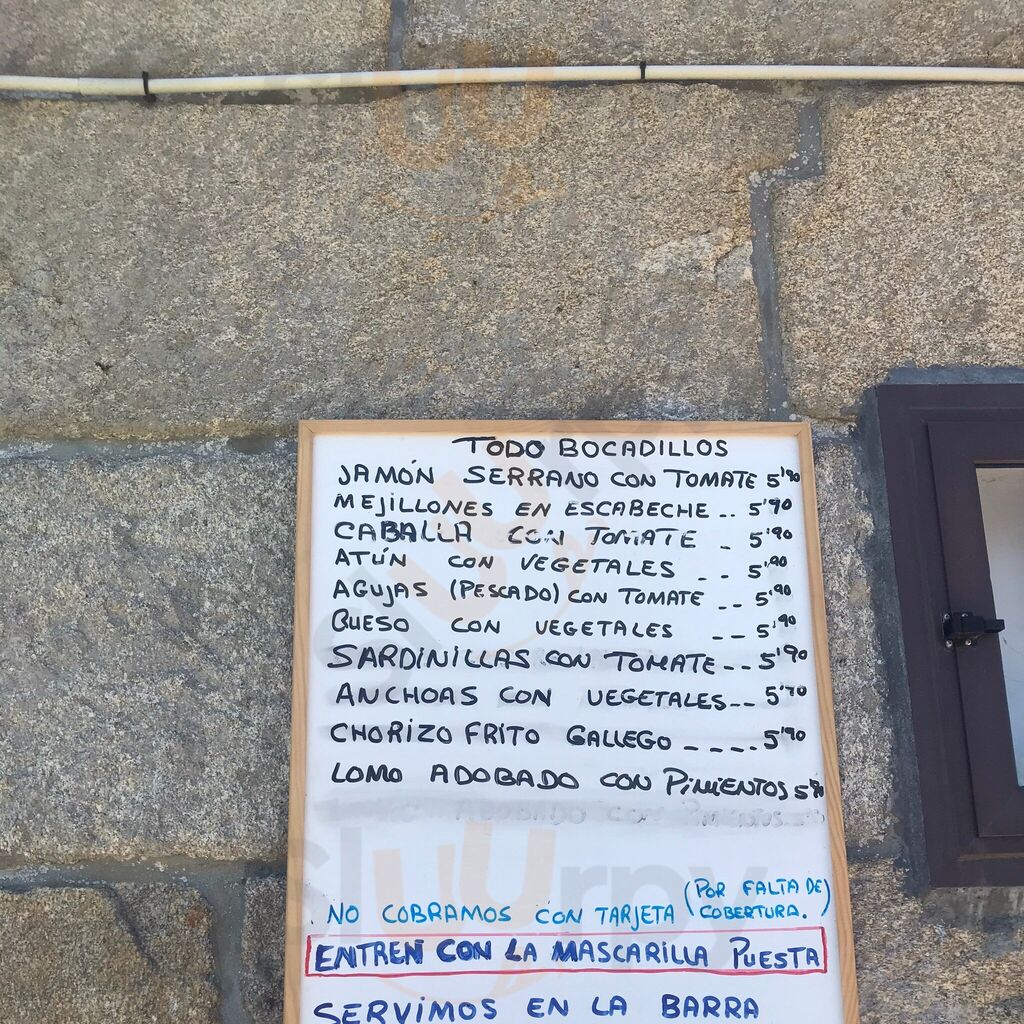 TODO BOCADILLOS
JAMÓN SERRANO CON TOMATE 5'90
MEJILLONES EN ESCABECHE .. 5'90
CABALLA CON TOMATE _ 5'90
ATÚN CON VEGETALES _ _ 5'90
AGUJAS (PESCADO) CON TOMATE _ _ 5'90
QUESO CON VEGETALES _ _ 5'90
SARDINILLAS CON TOMATE _ _ 5'90
ANCHOAS CON VEGETALES _ _ 5'90
CHORIZO FRITO GALLEGO _ _ _ _ 5'90
LOMO ADOBADO CON PIMIENTOS 5'90
NO COBRAMOS CON TARJETA (POR FALTA DE COBERTURA.)
ENTREN CON LA MASCARILLA PUESTA
SERVIMOS EN LA BARRA
sluurpy